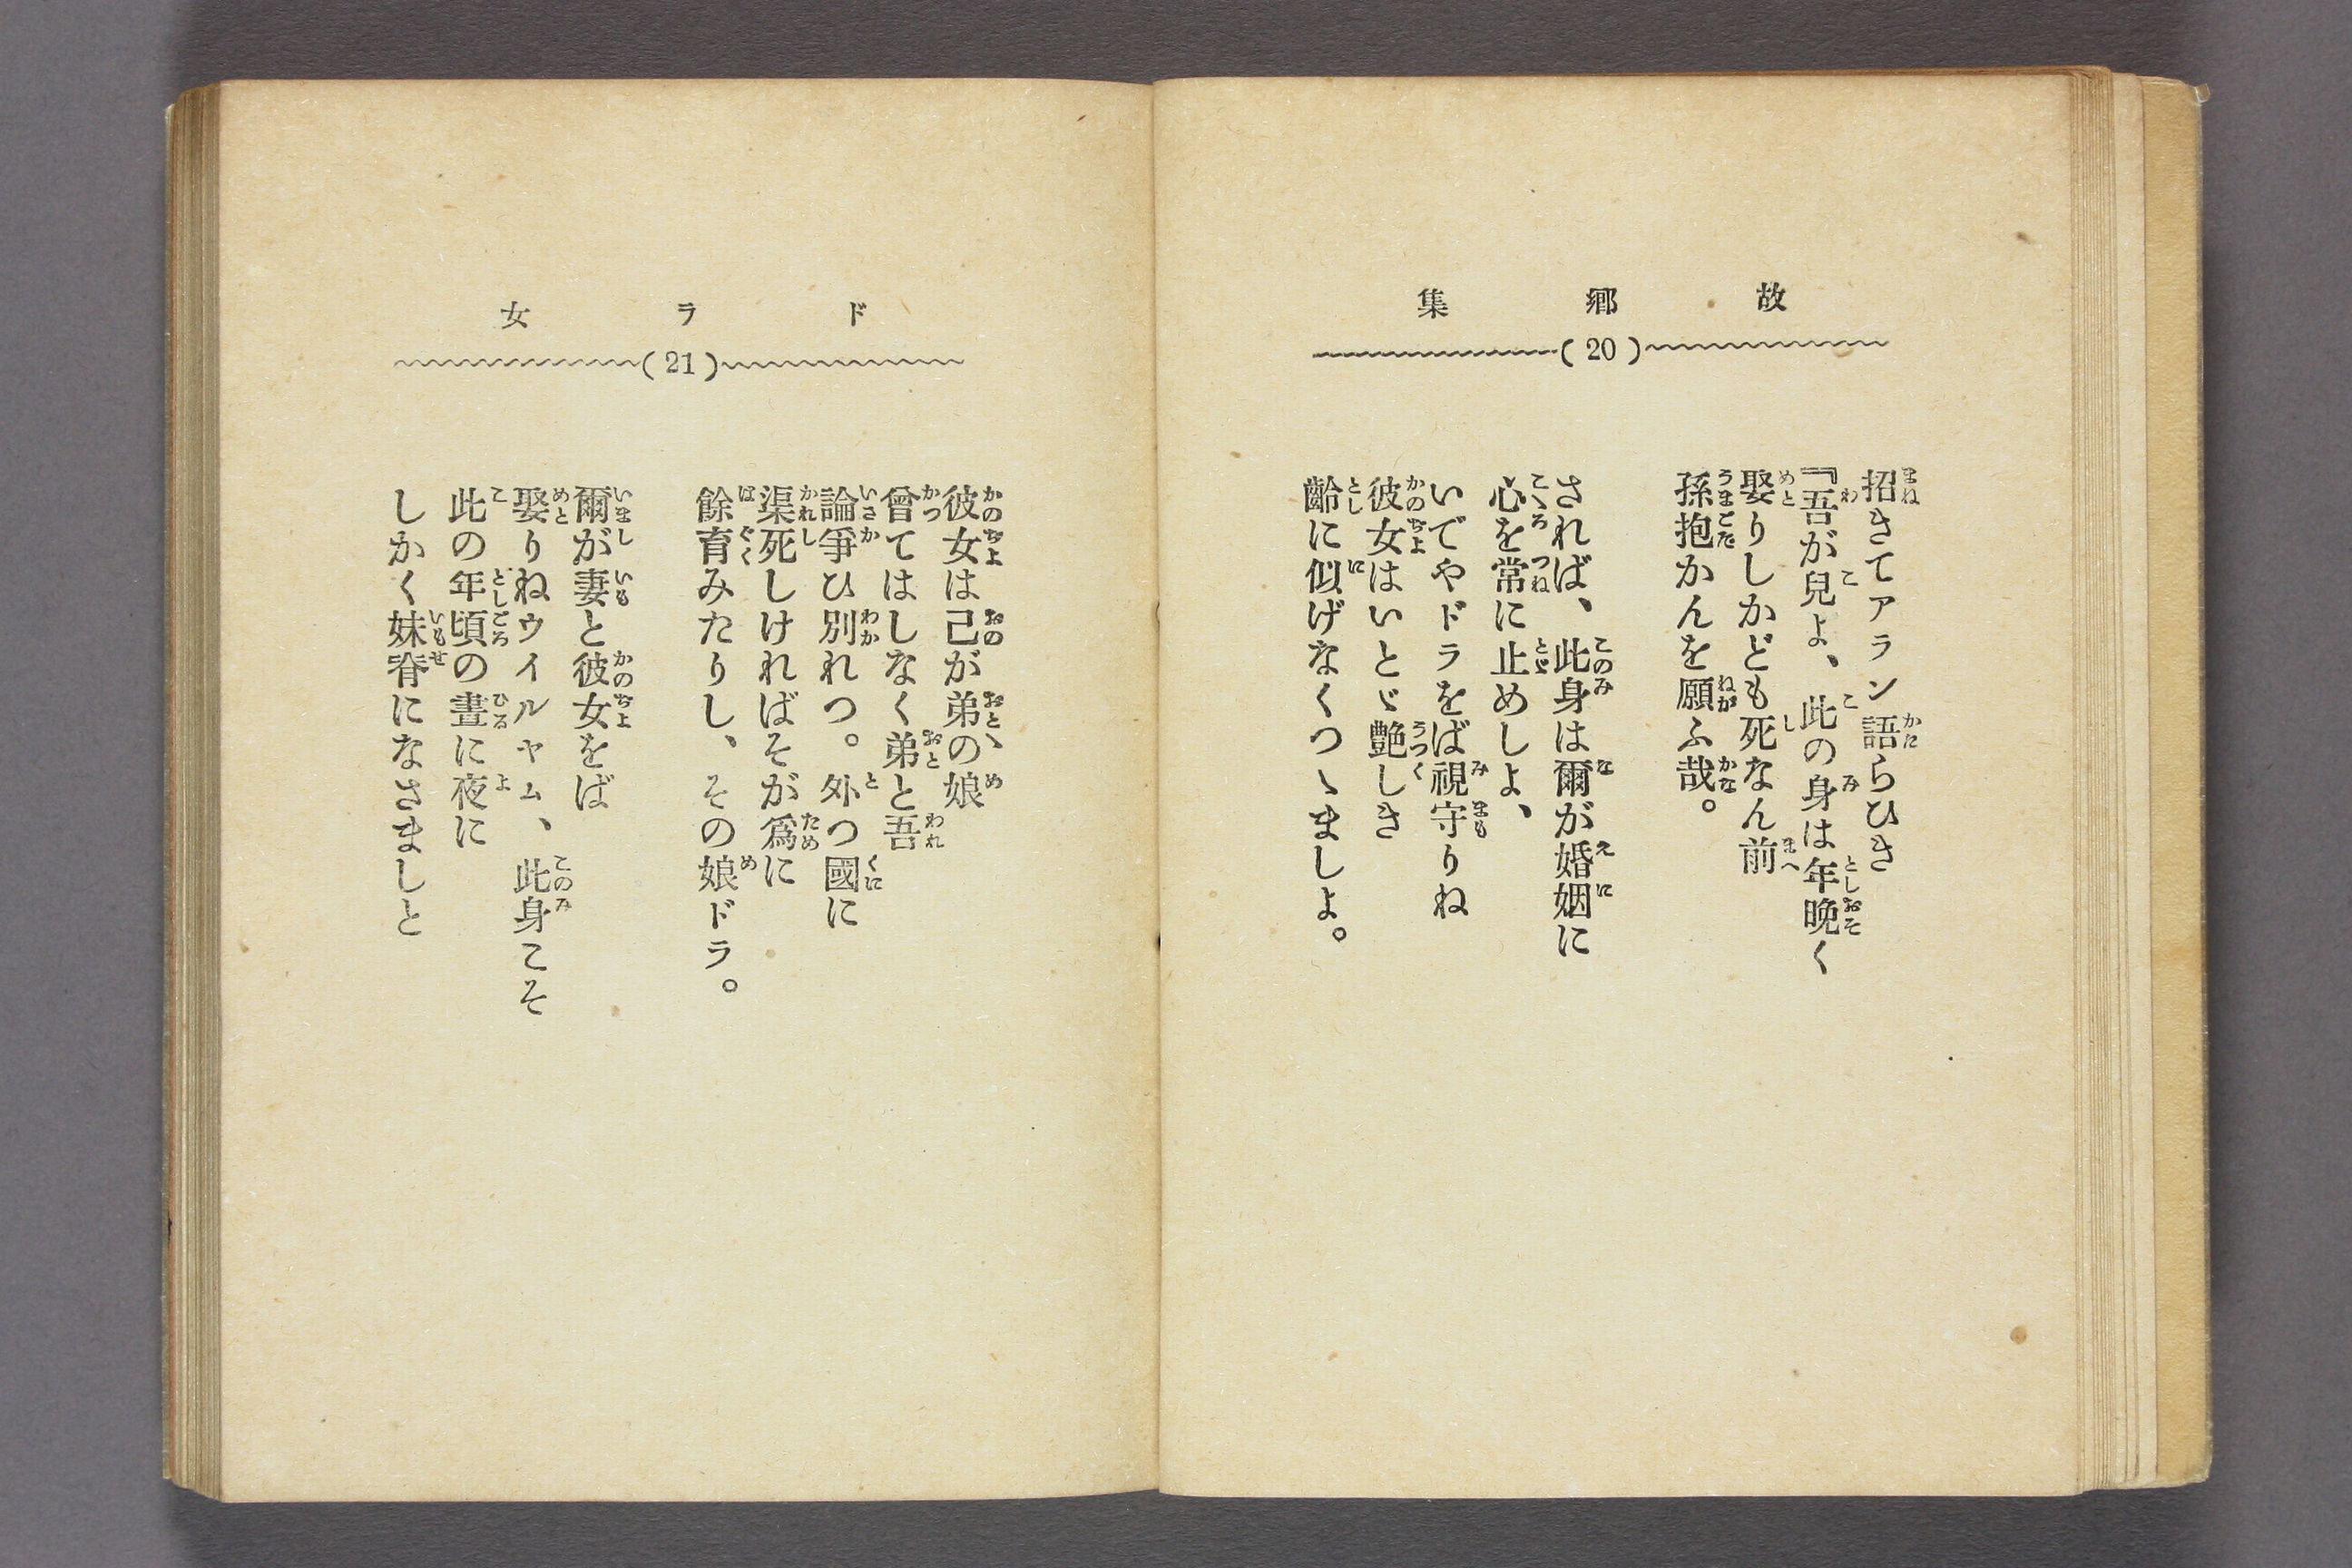 故鄕集
(20)
招きてアラン語らひき
『吾が兒よ、此の身は年晩く
娶りしかども死なん前
孫抱かんを願ふ哉。
されば、此身は爾が婚姻に
心を常に止めしよ、
いでやドラをば視守りね
彼女はいとゞ艶しき
齡に似げなくつゝましよ。
ドラ女
(21)
彼女は己が弟の娘
曾てはしなく弟と吾
論爭ひ別れつ。外つ國に
渠死しければそが爲に
餘育みたりし、その娘ドラ。
爾が妻と彼女をば
娶りねウイルヤム、此身こそ
此の年頃の晝に夜に
しかく妹脊になさましと